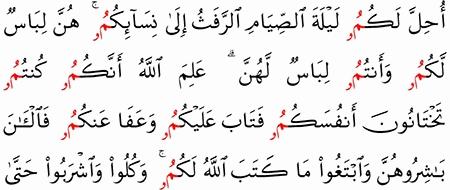 أُحِلَّ لَكُمُۥ لَيْلَةَ ٱلصِّيَامِ ٱلرَّفَثُ إِلَىٰ نِسَآئِكُمُۥ ۚ هُنَّ لِبَاسٌ
لَّكُمُۥ وَأَنتُمُۥ لِبَاسٌ لَّهُنَّ ۗ عَلِمَ ٱللَّهُ أَنَّكُمُۥ كُنتُمُۥ
تَخْتَانُونَ أَنفُسَكُمُۥ فَتَابَ عَلَيْكُمُۥ وَعَفَا عَنكُمُۥ فَٱلْـَٰٔنَ
بَـٰشِرُوهُنَّ وَٱبْتَغُوا۟ مَا كَتَبَ ٱللَّهُ لَكُمُۥ ۚ وَكُلُوا۟ وَٱشْرَبُوا۟ حَتَّىٰ